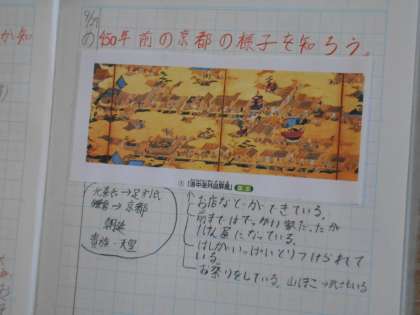 9/27
め 450年前の京都の様子を知ろう。
① 「洛中洛外図屏風」
お店などができている。
前まではでっかい家だったが
小さな家になっている。
はしがいっぱいとりつけられて
いる。
お祭りをしている。山ほこ
→足利氏
→京都
朝廷
貴族・天皇
か知